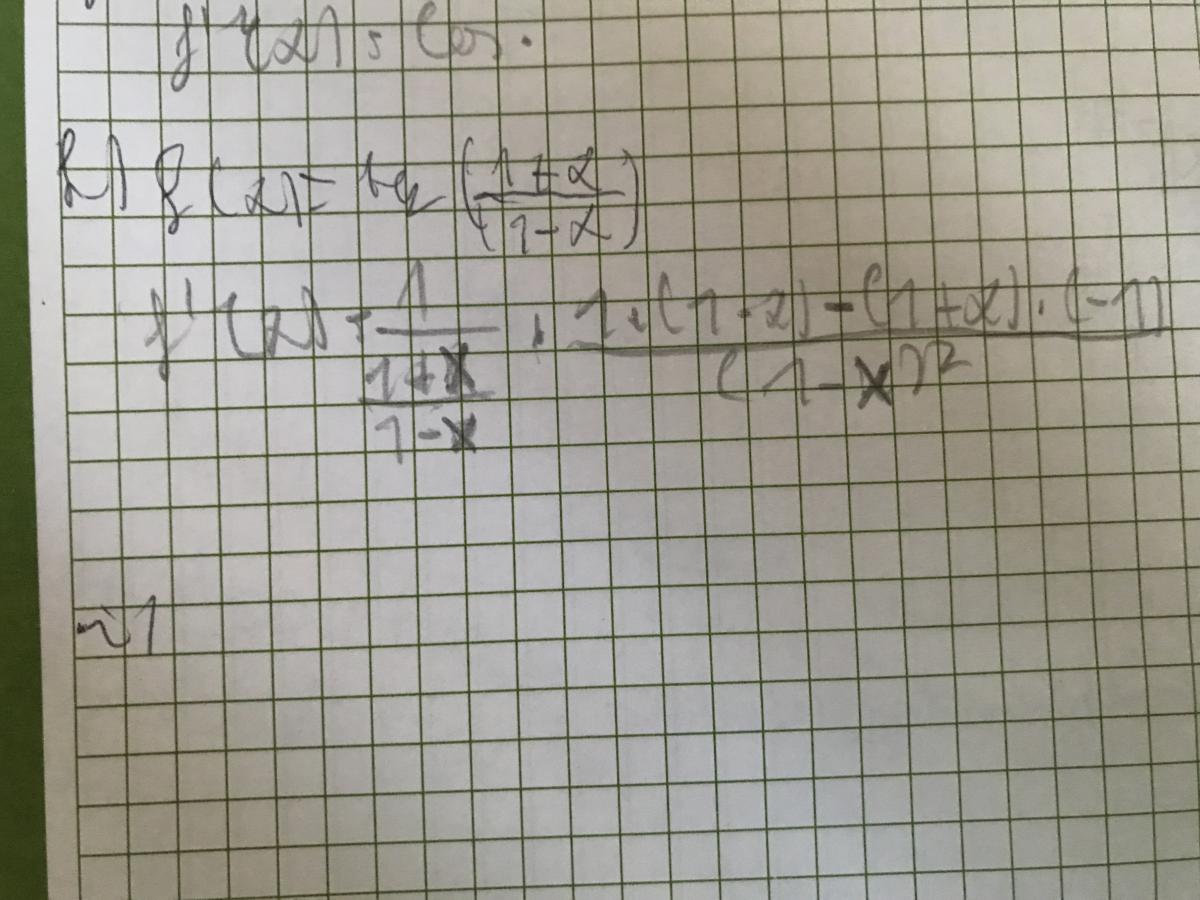 f'(x) = Cos.
h) f(x) = tg ((1+x)/(1-x))
f'(x) = 1/((1+x)/(1-x)) · (1·(1-x) - (1+x)·(-1))/(1-x)²
~1